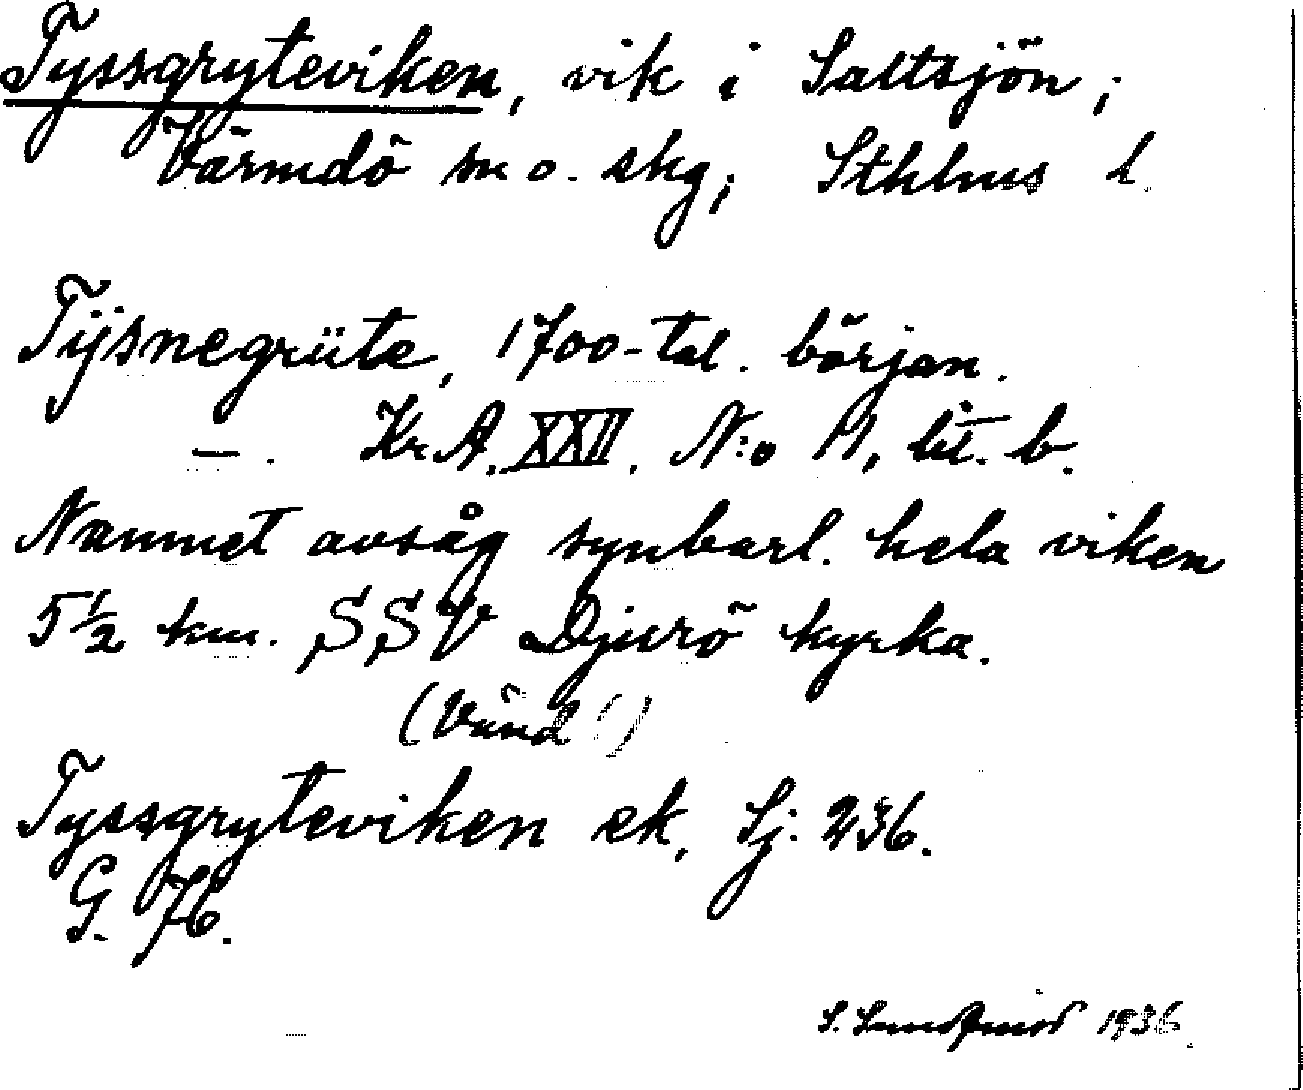 Tyssgryteviken, vik i Saltsjön;
Värmdö sn o. skg; Sthlms l.
Tijsnegrüte, 1700-tal. början.
—. Kr.A. XXII. N:o 11, lit. b.
Namnet avsåg synbarl. hela viken
5½ km. SSV Djurö kyrka.
(Vänd!)
Tyssgryteviken ek, Sj: 236.
G. 76.
S. 1936.